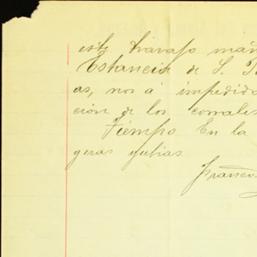 este travajo
Estancia de S.
as, nos á impedido
ción de los corrales
tiempo En la
geras yubias
Francis